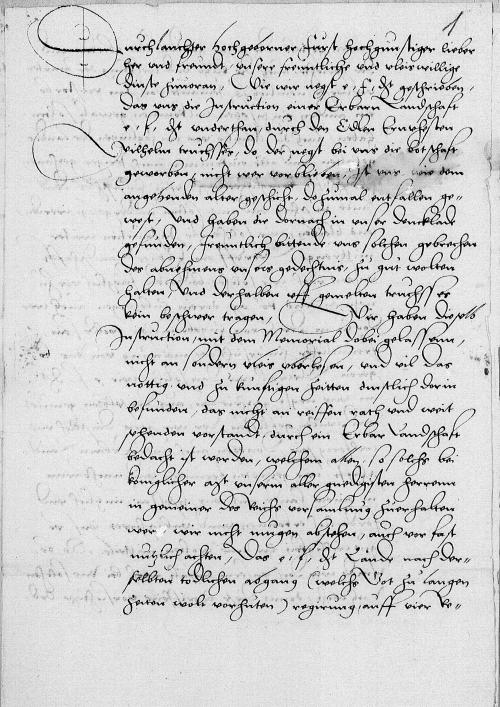 1
Durchlauchter Hochgeborner Furst hochgunstiger lieber
her und freundt, unsere freuntliche und vleis willige
dinste zuvoran, Wie wir negst e. f. dt. geschrieben,
das uns die Instruction einer Erbarn Landschafft
e. f. dt. underthan, durch den Edlen Ernvhesten
Wilhelm truchsses, do der negst bei uns die botschaft
geworben, nicht wer vorblieben, ist uns wie dem
angehenden alter geschicht, dozumal entfallen ge-
west, Und haben die dornach in unser dencklade
gefunden, freuntlich bittende uns solchen gebrechen
des abnehmens unsers gedechtnis, zu gut wolten
halten Und derhalben uff gemelten truchsses
kein beschwer tragen, Wir haben dieselb
Instruction, mit dem Memorial dobei gelassenn,
nicht an sondern vleis vberlesen, und vil das
nöttig und zu kunftigen zeitten dinstlich dorin
befunden, das nicht an reiffen rath und weit
sehenden vorstandt, durch ein Erbar Landschafft
bedacht ist worden, welchem allen, so solchs bei
königlicher mt. unserm aller gnedigsten herrenn
in gemeiner des Reichs vorsamlung zuerhalten
wer, wir nicht mugen abstehen, auch vor fast
nutzlich achten, Das e. f. dt. Lande nach der-
selbten todlichen abgang (welchs Got zu langen
Zeiten wolt vorhuten) regirung, auff vier Re-